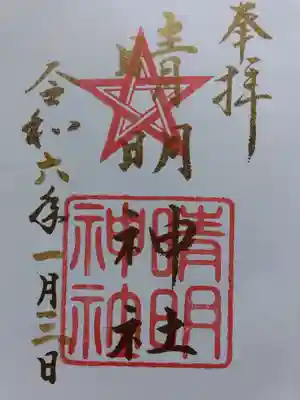 奉拝
晴明
神社
晴明神社
令和六年一月三日